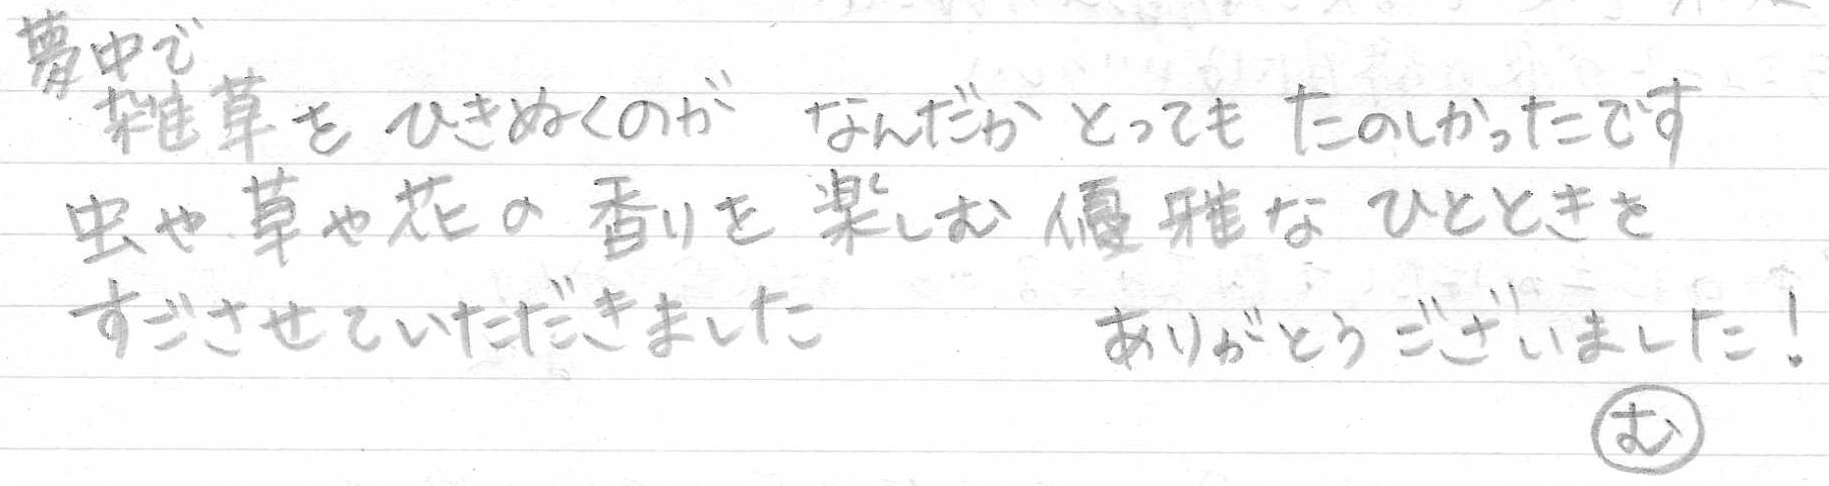 夢中で
雑草を ひきぬくのが なんだか とっても たのしかったです
虫や草や花の 香りを 楽しむ 優雅な ひとときを
すごさせていただきました ありがとうございました!
む